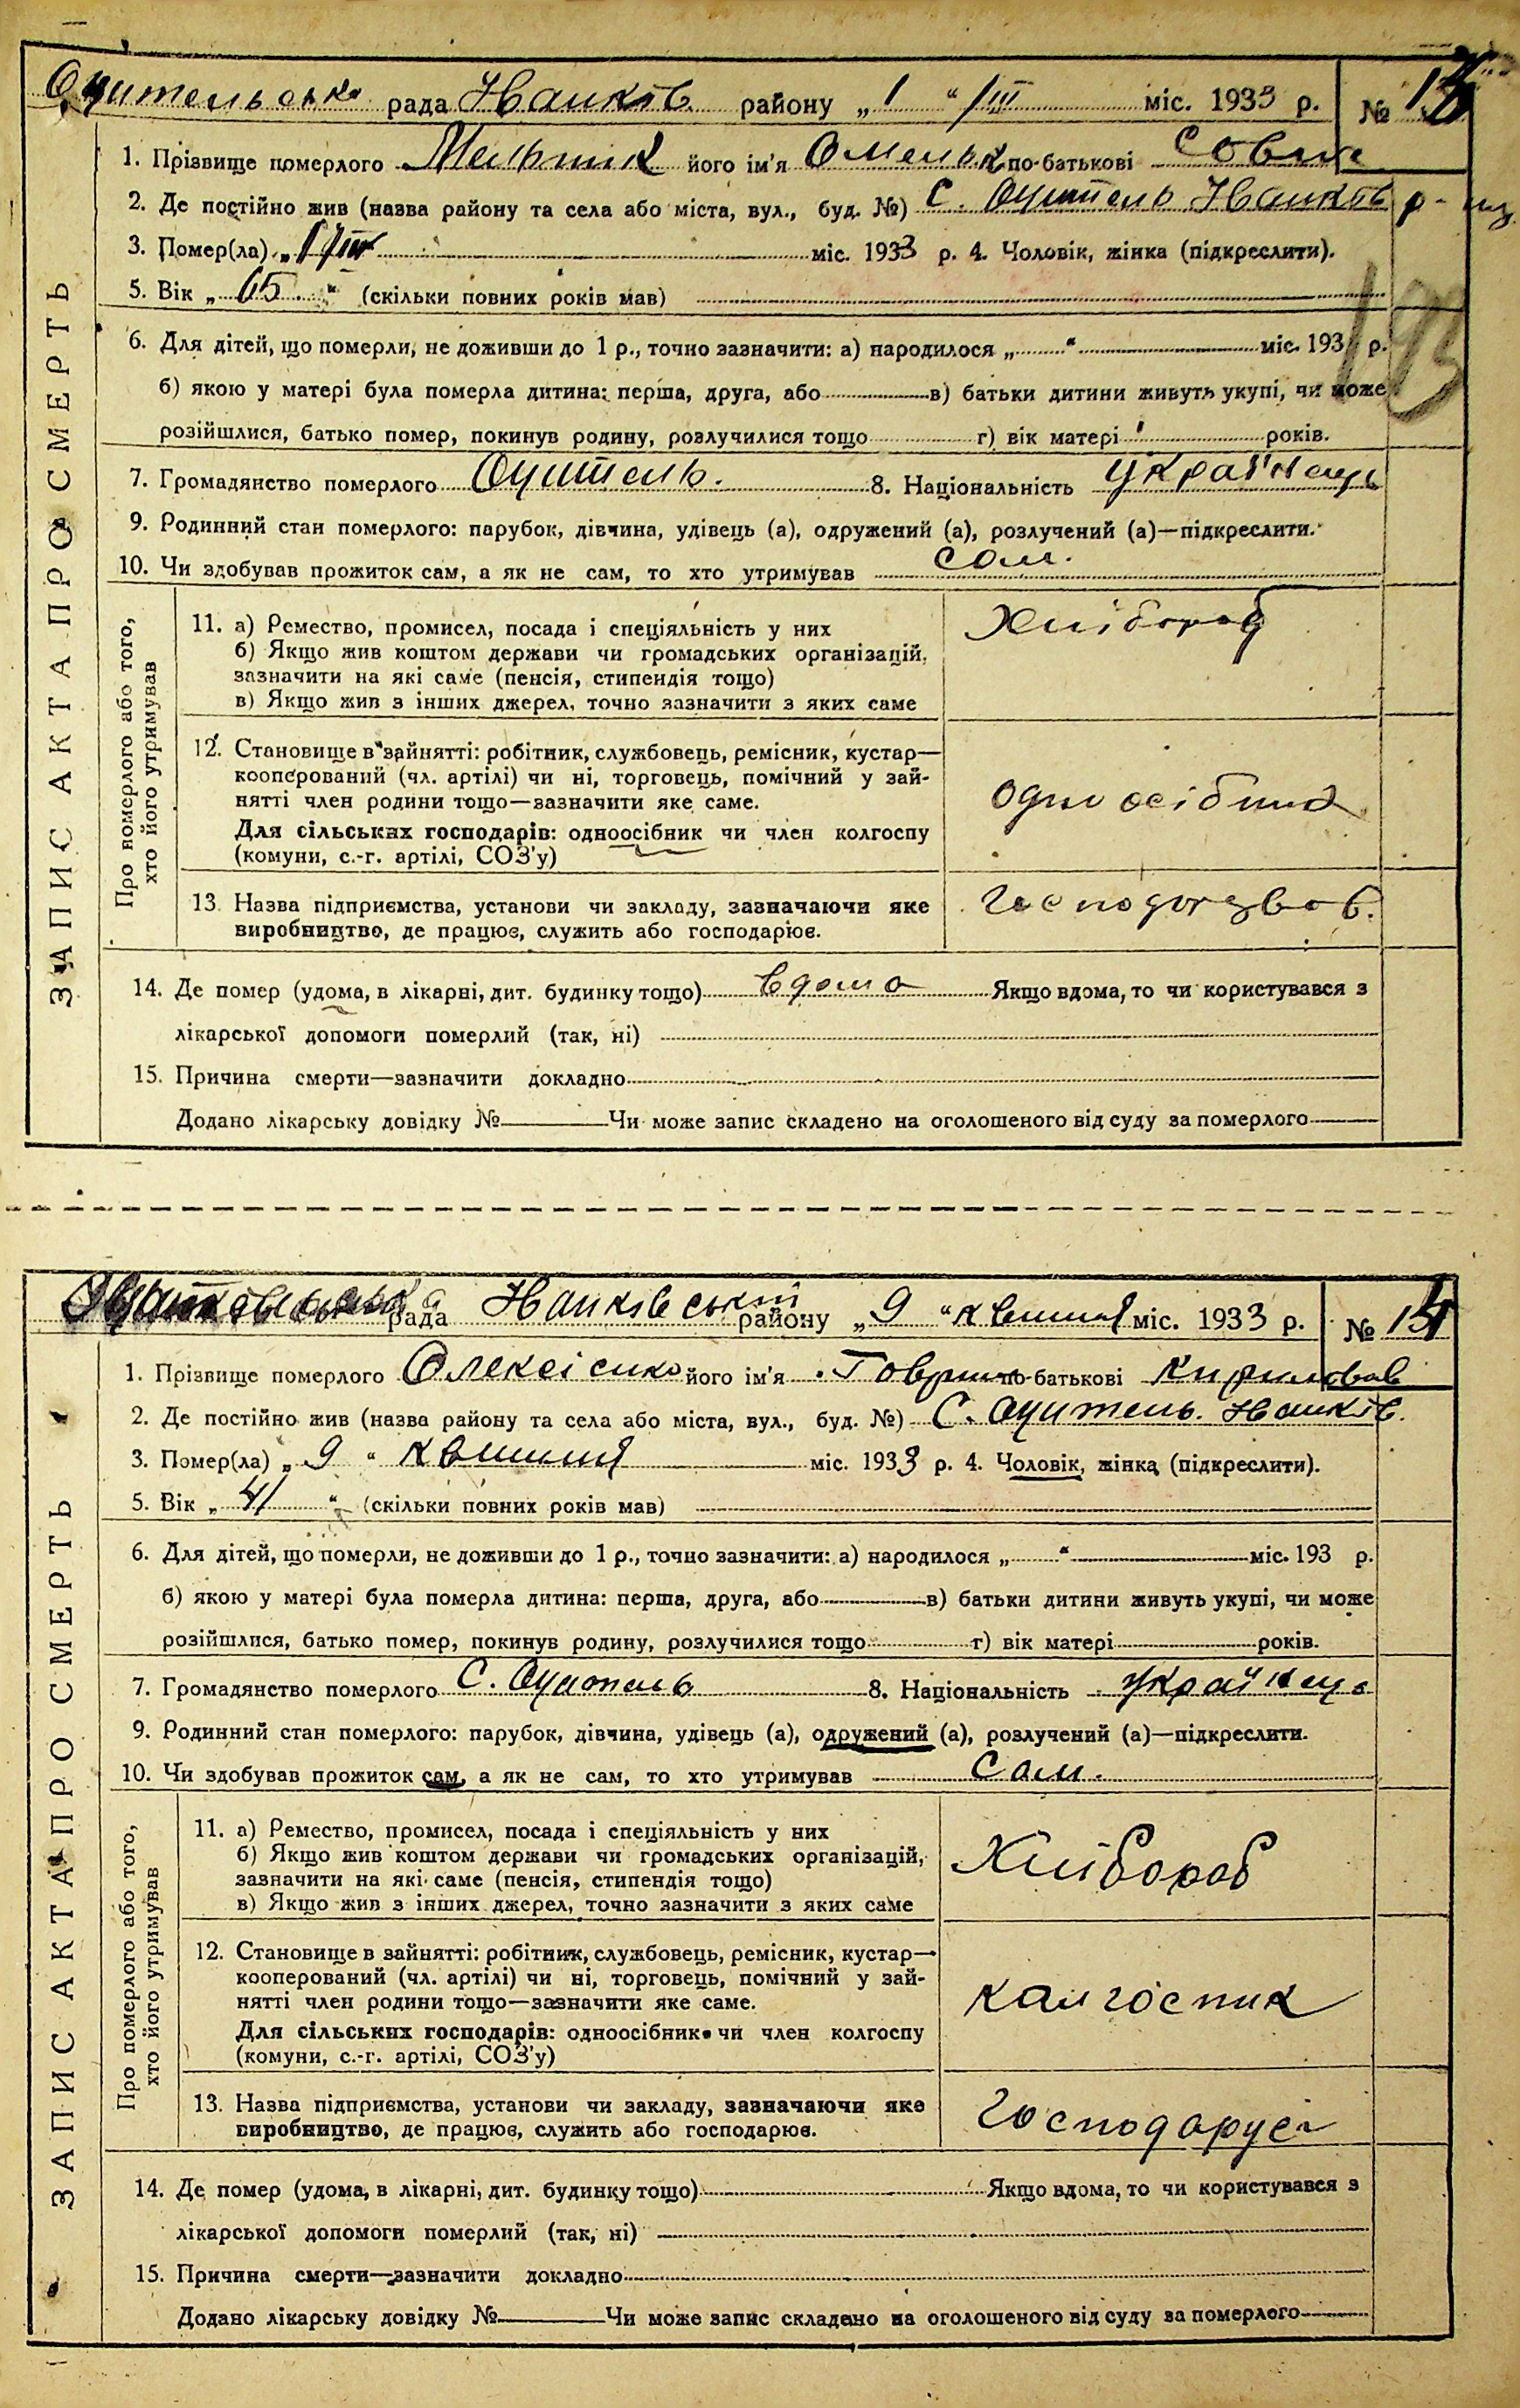 рада Іванків району „ 1 “ /III міс. 1933 р. №
1. Прізвище померлого Мельник його ім'я Омельк по-батькові Совик
2. Де постійно жив (назва району та села або міста, вул., буд. №) с. Оцитель Іванків р-
3. Помер(ла) „ 1/III міс. 1933 р. 4. Чоловік, жінка (підкреслити).
5. Вік „ 65 “ (скільки повних років мав)
6. Для дітей, що померли, не доживши до 1 р., точно зазначити: а) народилося „ “ міс. 193 р.
б) якою у матері була померла дитина: перша, друга, або в) батьки дитини живуть укупі, чи може
розійшлися, батько помер, покинув родину, розлучилися тощо г) вік матері років.
7. Громадянство померлого Оцитель. 8. Національність Українець
9. Родинний стан померлого: парубок, дівчина, удівець (а), одружений (а), розлучений (а)—підкреслити.
10. Чи здобував прожиток сам, а як не сам, то хто утримував сам.
ЗАПИС АКТА ПРО СМЕРТЬ
Про померлого або того,
хто його утримував
11. а) Ремество, промисел, посада і спеціяльність у них
б) Якщо жив коштом держави чи громадських організацій,
зазначити на які саме (пенсія, стипендія тощо)
в) Якщо жив з інших джерел, точно зазначити з яких саме
Хлібороб
12. Становище в зайнятті: робітник, службовець, ремісник, кустар—
кооперований (чл. артілі) чи ні, торговець, помічний у зай-
нятті член родини тощо—зазначити яке саме.
Для сільських господарів: одноосібник чи член колгоспу
(комуни, с.-г. артілі, СОЗ'у)
одноосібник
13. Назва підприємства, установи чи закладу, зазначаючи яке
виробництво, де працює, служить або господарює.
14. Де помер (удома, в лікарні, дит. будинку тощо) вдома Якщо вдома, то чи користувався з
лікарської допомоги померлий (так, ні)
15. Причина смерти—зазначити докладно
Додано лікарську довідку № Чи може запис складено на оголошеного від суду за померлого
рада Іванківський району „ 9 “ квітня міс. 1933 р. №
1. Прізвище померлого Олексієнко його ім'я по-батькові Кирилов
2. Де постійно жив (назва району та села або міста, вул., буд. №) С. Оцитель. Іванків.
3. Помер(ла) „ 9 “ квітня міс. 1933 р. 4. Чоловік, жінка (підкреслити).
5. Вік „ 41 “ (скільки повних років мав)
6. Для дітей, що померли, не доживши до 1 р., точно зазначити: а) народилося „ “ міс. 193 р.
б) якою у матері була померла дитина: перша, друга, або в) батьки дитини живуть укупі, чи може
розійшлися, батько помер, покинув родину, розлучилися тощо г) вік матері років.
7. Громадянство померлого С. Оцитель 8. Національність Українець
9. Родинний стан померлого: парубок, дівчина, удівець (а), одружений (а), розлучений (а)—підкреслити.
10. Чи здобував прожиток сам, а як не сам, то хто утримував Сам.
ЗАПИС АКТА ПРО СМЕРТЬ
Про померлого або того,
хто його утримував
11. а) Ремество, промисел, посада і спеціяльність у них
б) Якщо жив коштом держави чи громадських організацій,
зазначити на які саме (пенсія, стипендія тощо)
в) Якщо жив з інших джерел, точно зазначити з яких саме
Хлібороб
12. Становище в зайнятті: робітник, службовець, ремісник, кустар—
кооперований (чл. артілі) чи ні, торговець, помічний у зай-
нятті член родини тощо—зазначити яке саме.
Для сільських господарів: одноосібник чи член колгоспу
(комуни, с.-г. артілі, СОЗ'у)
калгоспник
13. Назва підприємства, установи чи закладу, зазначаючи яке
виробництво, де працює, служить або господарює.
Господарує
14. Де помер (удома, в лікарні, дит. будинку тощо) Якщо вдома, то чи користувався з
лікарської допомоги померлий (так, ні)
15. Причина смерти—зазначити докладно
Додано лікарську довідку № Чи може запис складено на оголошеного від суду за померлого